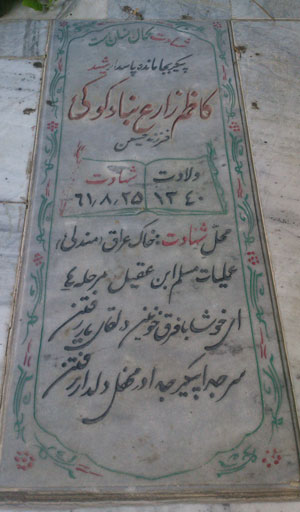 شهادت کمال انسان است
پیکر بجا مانده پاسدار شهید
کاظم زارع بنادکوکی
فرزند حسن
ولادت شهادت
۱۳۴۰ ۶۱/۸/۲۵
محل شهادت: خاک عراق (مندلی)
عملیات مسلم ابن عقیل مرحله
ای خوشا با فرق خونین در لقای یار رفتن
سر جدا پیکر جدا در محفل دلدار رفتن